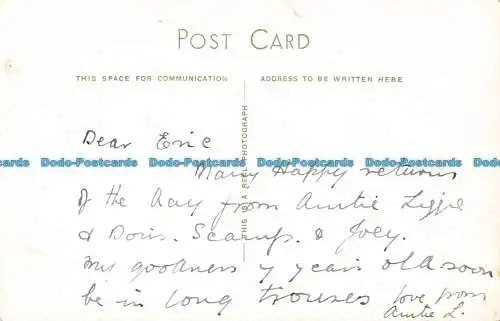 POST CARD
THIS SPACE FOR COMMUNICATION
ADDRESS TO BE WRITTEN HERE
THIS IS A REAL PHOTOGRAPH
Dear Eric
Many Happy returns
Of the day from Auntie Lizzie
& Doris. Scamp. & Joey.
my goodness 7 years old. soon
be in long trouses love from
Auntie L.
Dodo-Postcards Dodo-Postcards Dodo-Postcards Dodo-Postcards